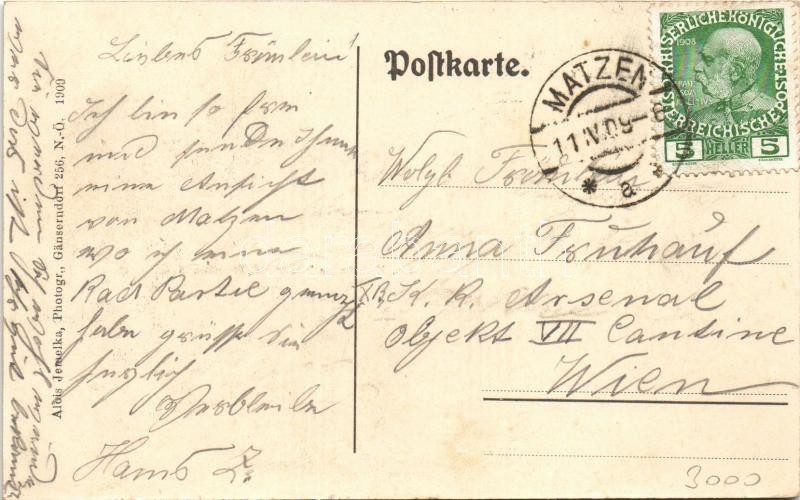 Liebes Fräulein!
Ich bin so frei
und sende Ihnen
eine Ansicht
von Matzen
wo ich eine
Rad Partie gemacht
habe grüsse Sie
herzlich
verbleibe
Hans Z.
Alois Jemelka, Photogr., Gänserndorf 256, N.-Ö. 1909
Postkarte.
MATZEN
11.IV.09
* a
1908
KAISERLICHE KÖNIGLICHE
ÖSTERREICHISCHE POST
5 HELLER 5
Wolgb. Fräulein
Anna Fruhauf
K. K. Arsenal
Objekt VII Cantine
Wien
3000